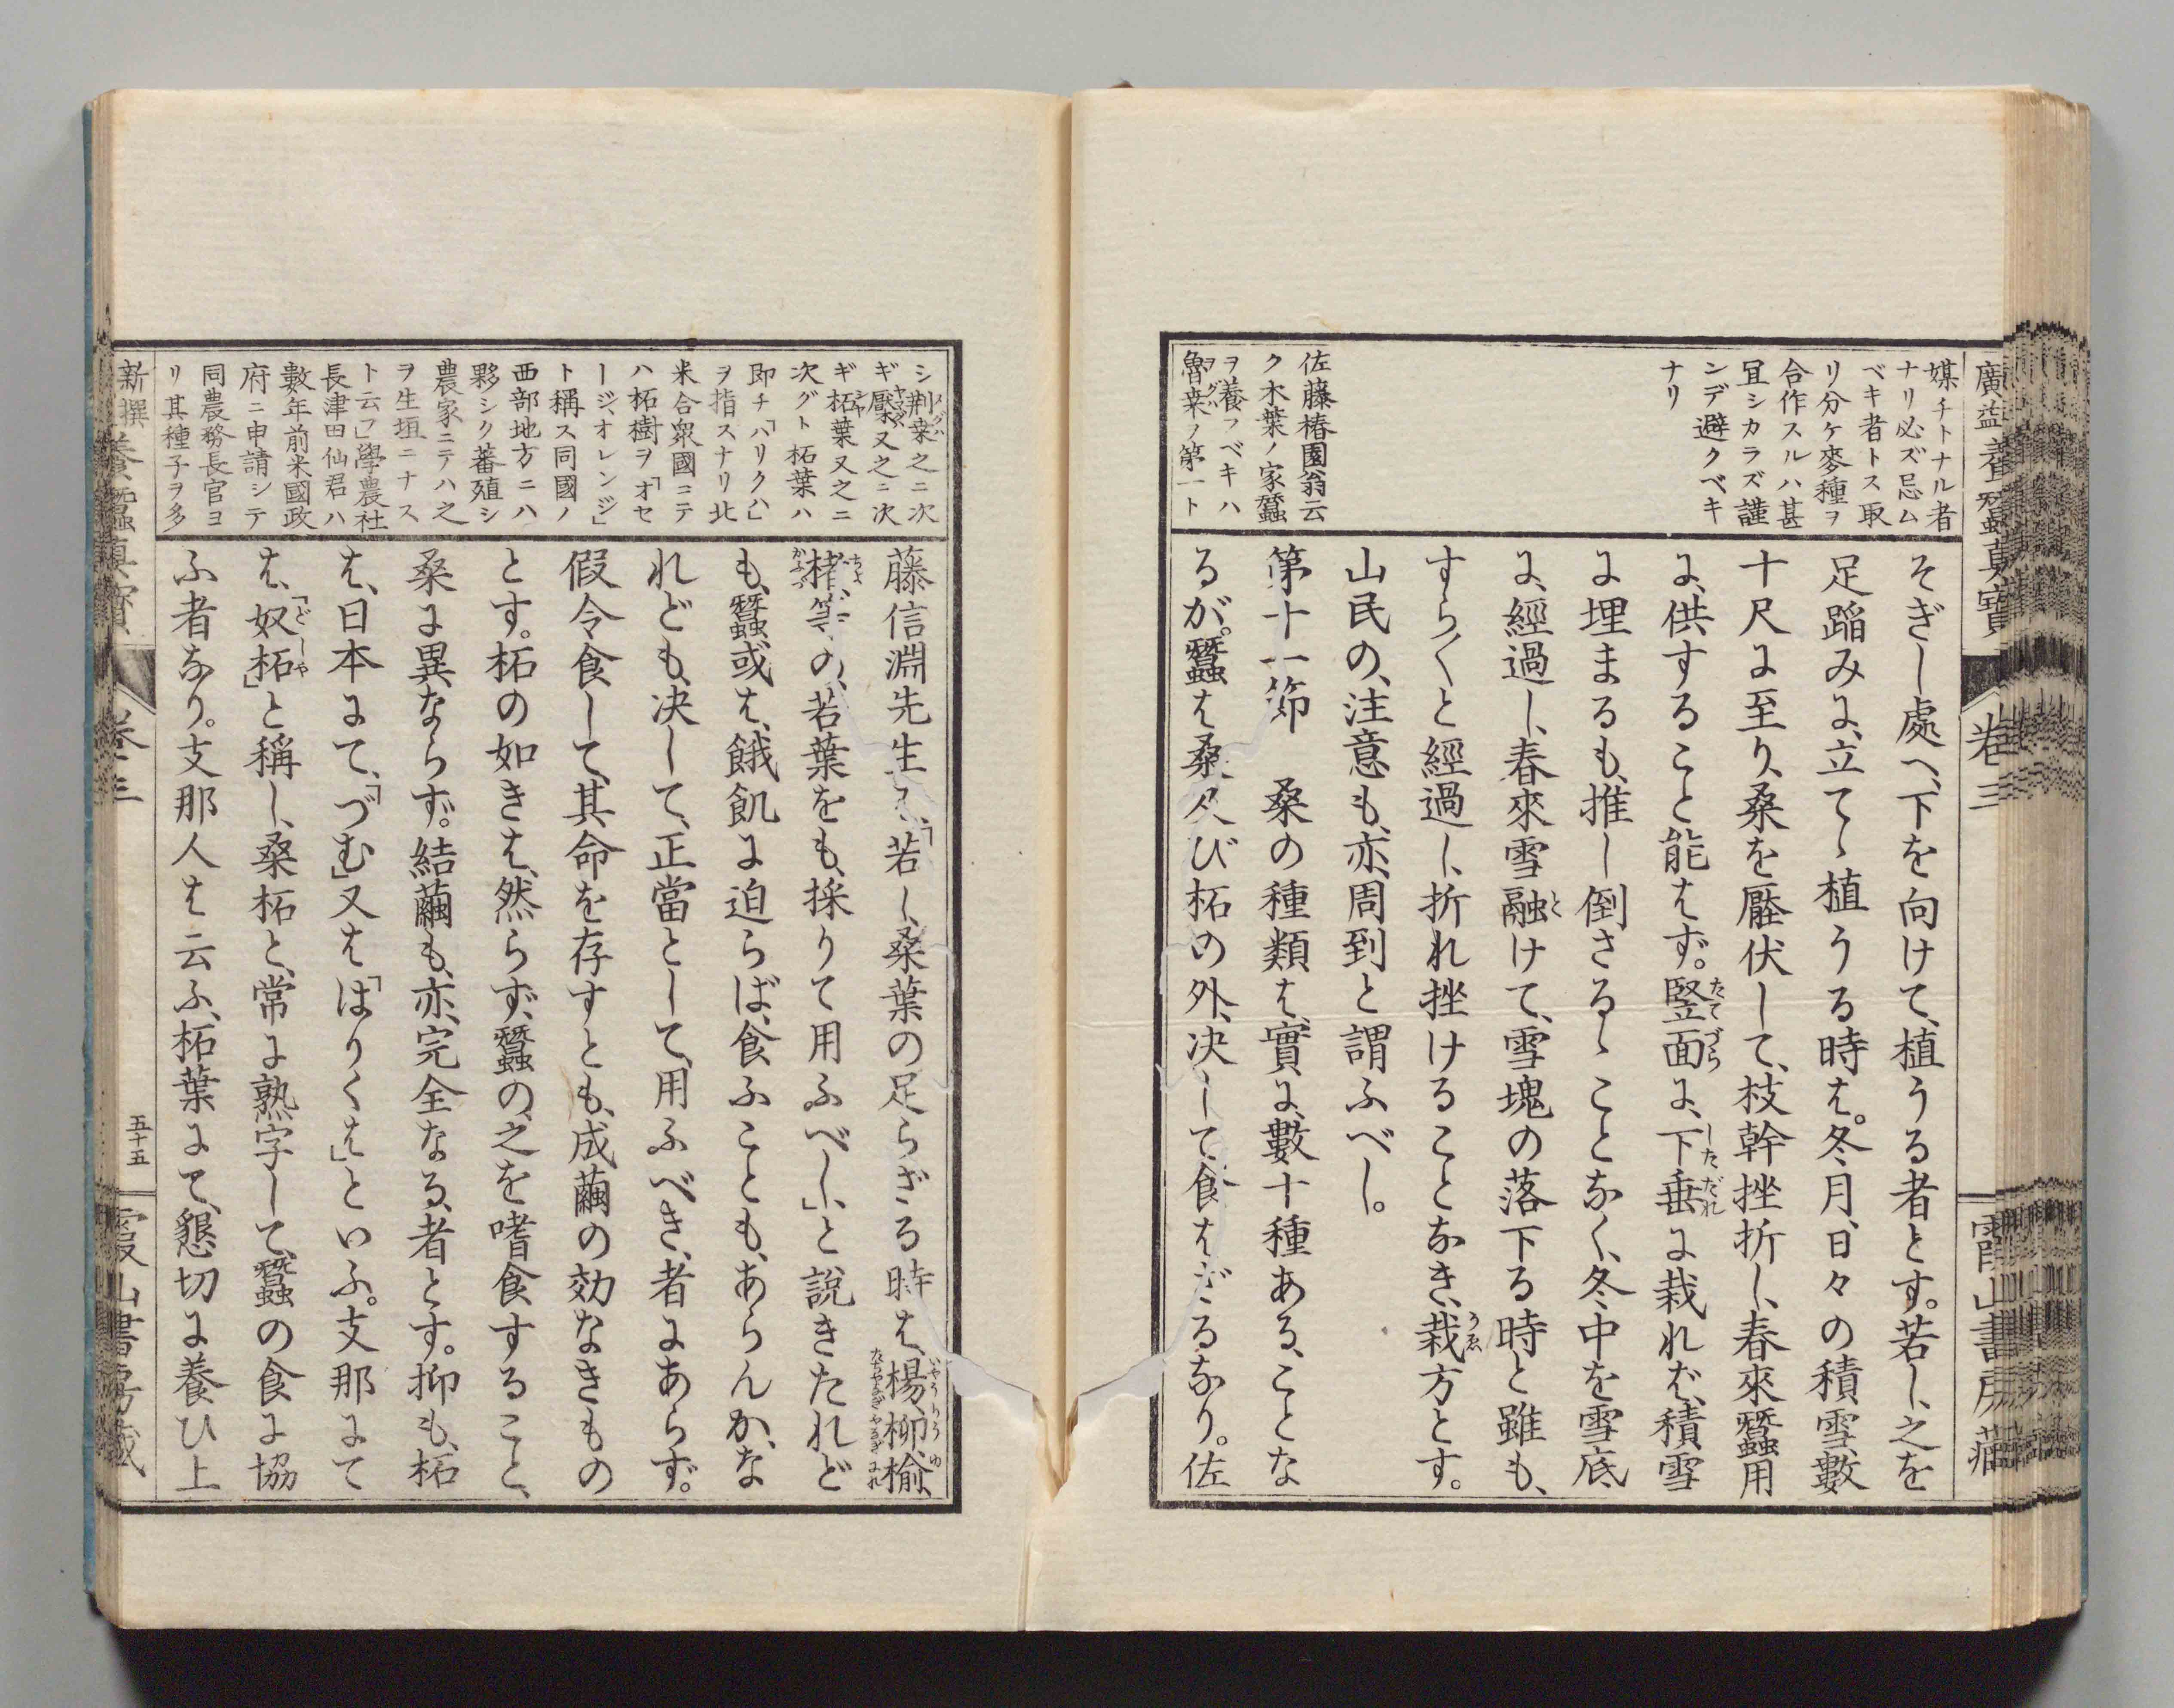 廣益養蠶眞寶 卷三 霞山書房藏
媒チトナル者
ナリ必ズ忌ム
ベキ者トス取
リ分ケ麥種ヲ
合作スルハ甚
冝シカラズ謹
ンデ避クベキ
ナリ
佐藤椿園翁云
ク木葉ノ家蠶
ヲ養フベキハ
魯桑ノ第一ト
そぎし處へ、下を向けて、植うる者とす。若し、之を
足蹈みに、立てゝ植うる時は。冬月、日々の積雪、數
十尺に至り、桑を壓伏して、枝幹挫折し、春來蠶用
に、供すること能はず。竪面に、下垂に栽れば、積雪
に埋まるも、推し倒さるゝことなく、冬中を雪底
に、經過し、春來雪融けて、雪塊の落下る時と雖も、
すら〱と經過し、折れ挫けることなき、栽方とす。
山民の、注意も、亦、周到と謂ふべし。
第十一節　桑の種類は、實に、數十種ある、ことな
るが。蠶は桑及び柘の外、决して食はざるなり。佐
シ荆桑之ニ次
ギ檿又之ニ次
ギ柘葉又之ニ
次グト柘葉ハ
即チ「ハリクハ」
ヲ指スナリ北
米合衆國ニテ
ハ柘樹ヲ「オセ
ージ、オレンジ」
ト稱ス同國ノ
西部地方ニハ
夥シク蕃殖シ
農家ニテハ之
ヲ生垣ニナス
ト云フ」學農社
長津田仙君ハ
數年前米國政
府ニ申請シテ
同農務長官ヨ
リ其種子ヲ多
藤信淵先生は、「若し、桑葉の足らざる時は、楊、柳、楡、
楮、等の、若葉をも、採りて用ふべし」、と說きたれど
も、蠶、或は、餓飢に迫らば、食ふことも、あらんか、な
れども、决して、正當として、用ふべき、者にあらず。
假令食して、其命を存すとも、成繭の効なきもの
とす。柘の如きは、然らず、蠶の、之を嗜食すること、
桑に異ならず。結繭も、亦、完全なる、者とす。抑も、柘
は、日本にて、「づむ」又は「はりくは」といふ。支那にて
は、「奴柘」と稱し、桑柘と、常に熟字して、蠶の食に協
ふ者なり。支那人は云ふ、柘葉にて、懇切に養ひ上
新撰養蠶眞寶 卷三 五十五 霞山書房藏